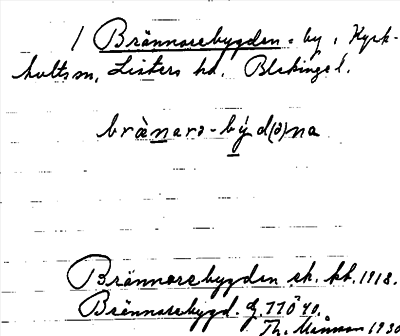 1 Brännarebygden. by i Kyrk-
hultsn, Listers hd. Blekinge l.
brànarə-bý d(ə)na
Brännarebygden ek. kb. 1918.
Brännarebygd. G. 11Ö 40.
Th. 1930